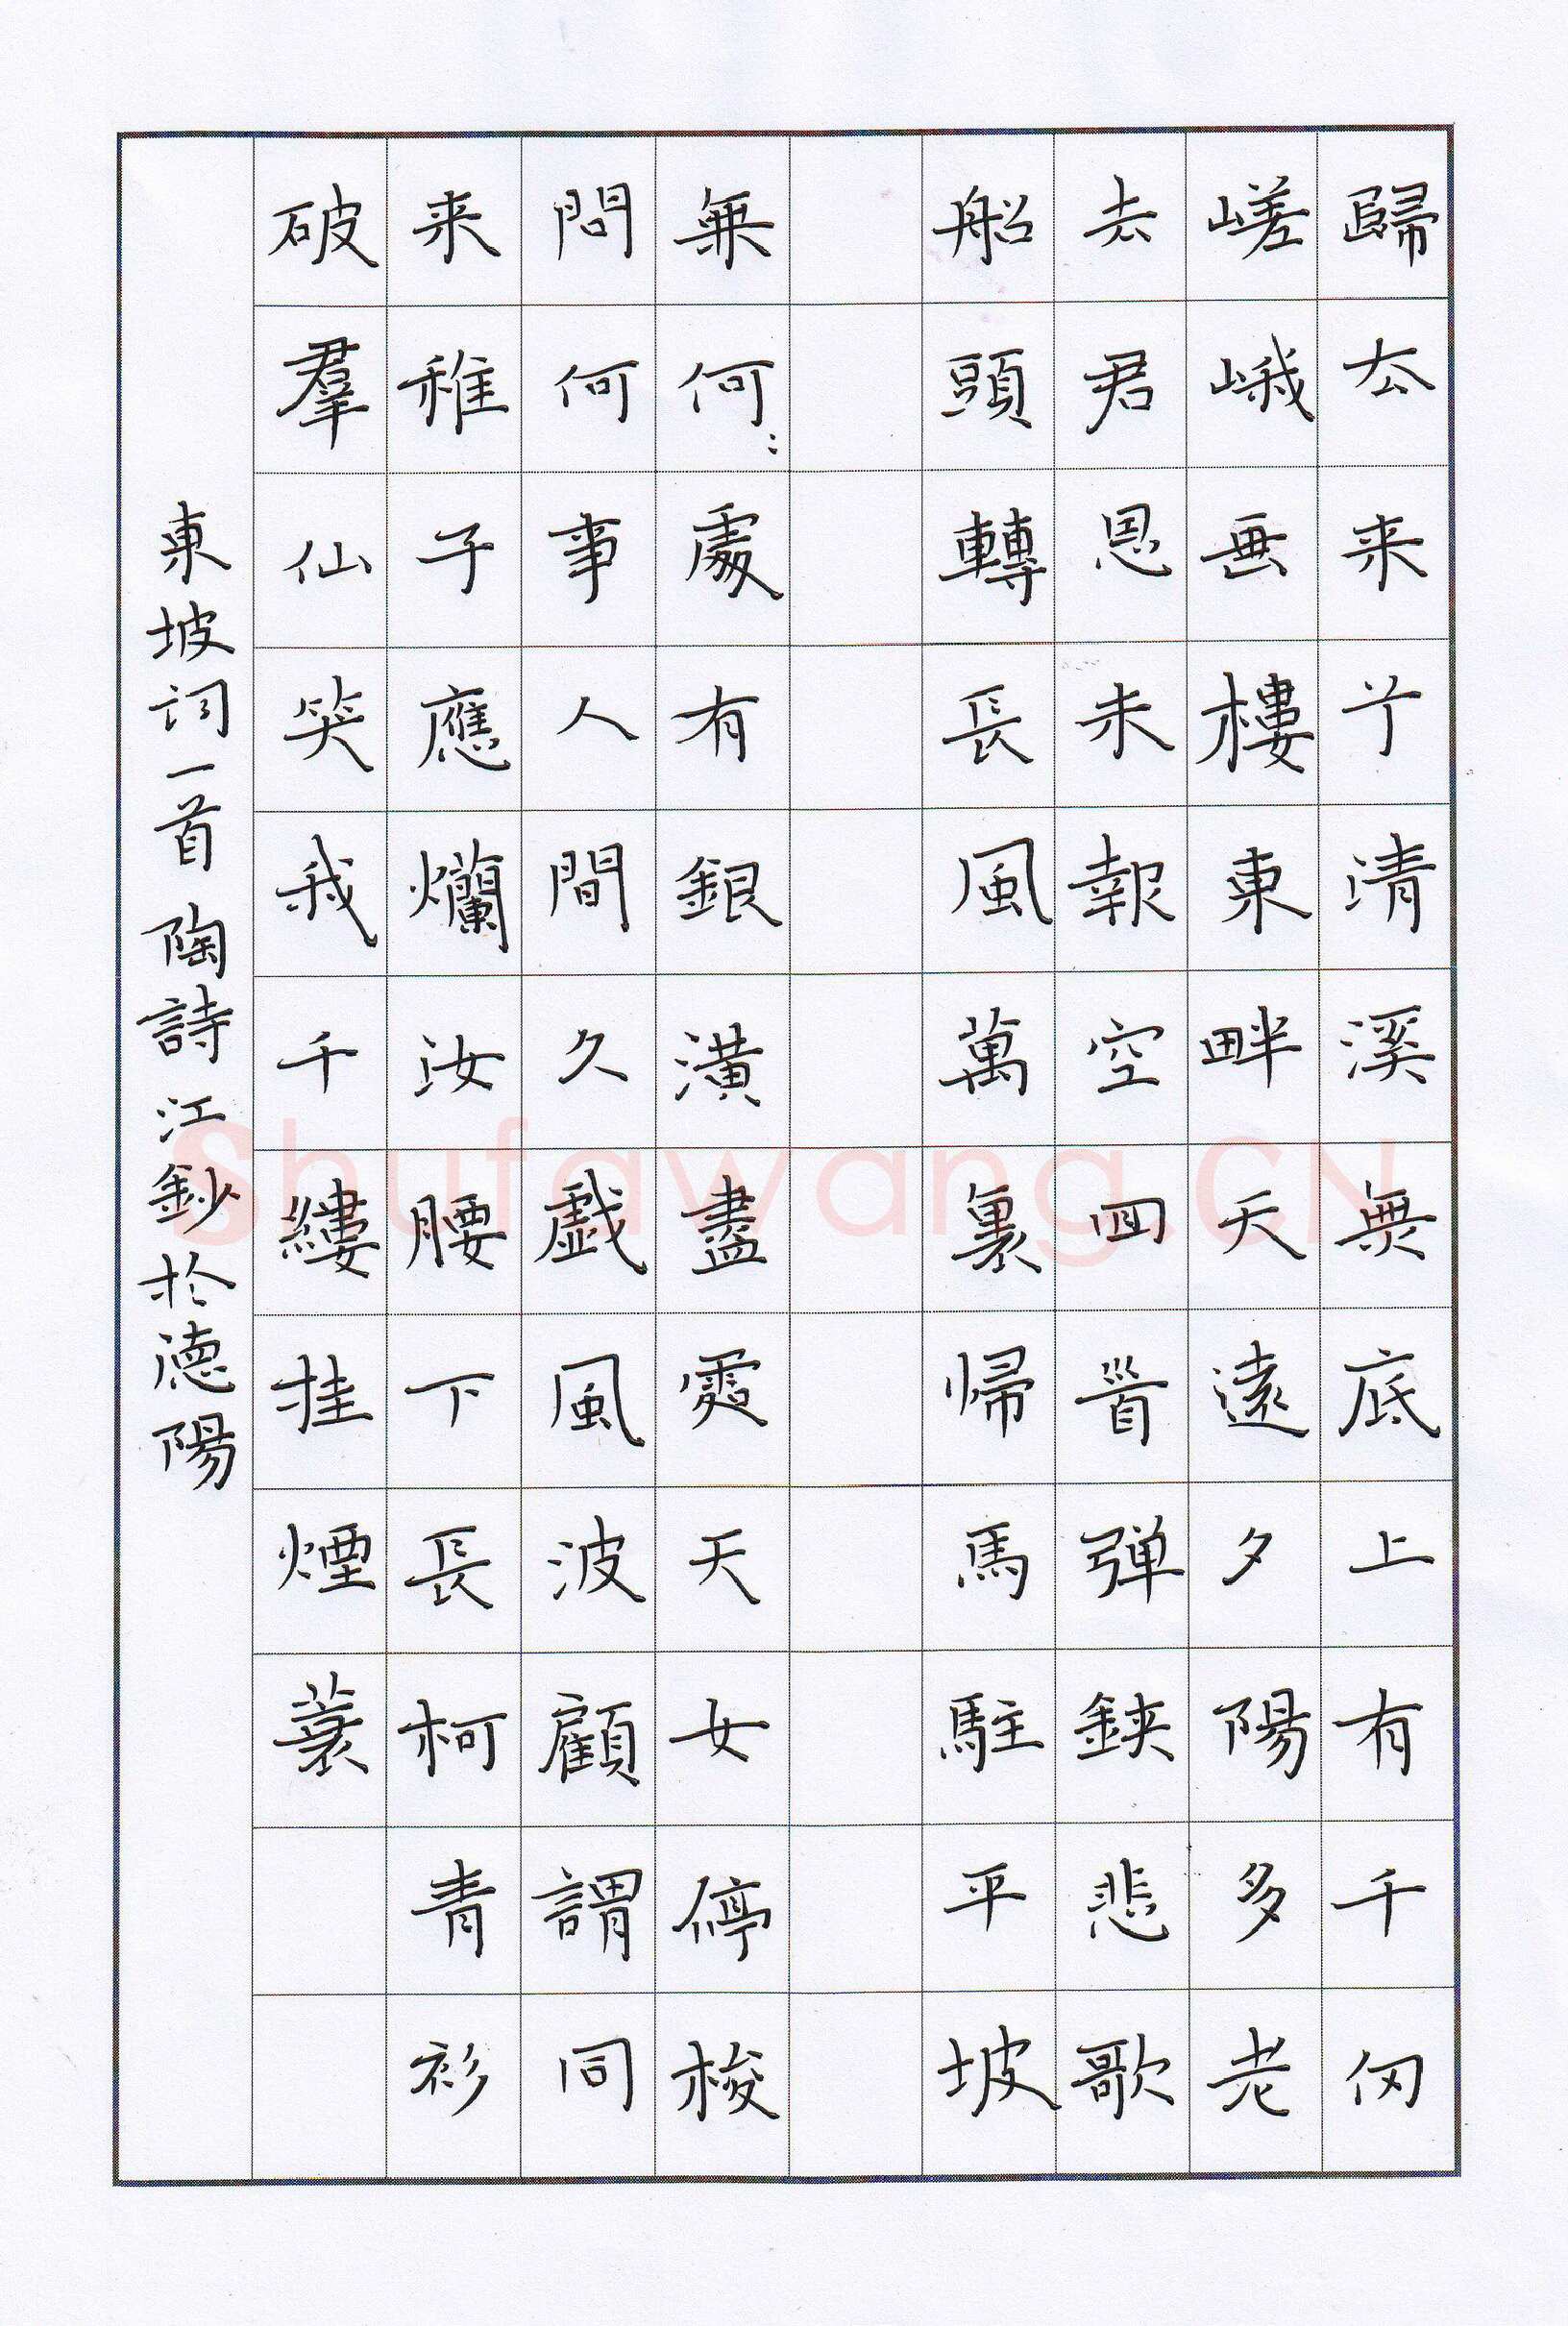 歸去来兮清溪無底上有千仞
嵯峨画樓東畔天遠夕陽多老
去君恩未報空回首弹鋏悲歌
船頭轉長風萬裏帰馬駐平坡
無何：處有銀潢盡處天女停梭
問何事人間久戯風波顧謂同
来稚子應爛汝腰下長柯青衫
破羣仙笑我千縷挂煙蓑
東坡词一首 陶詩江鈔於德陽
Shufawang.CN